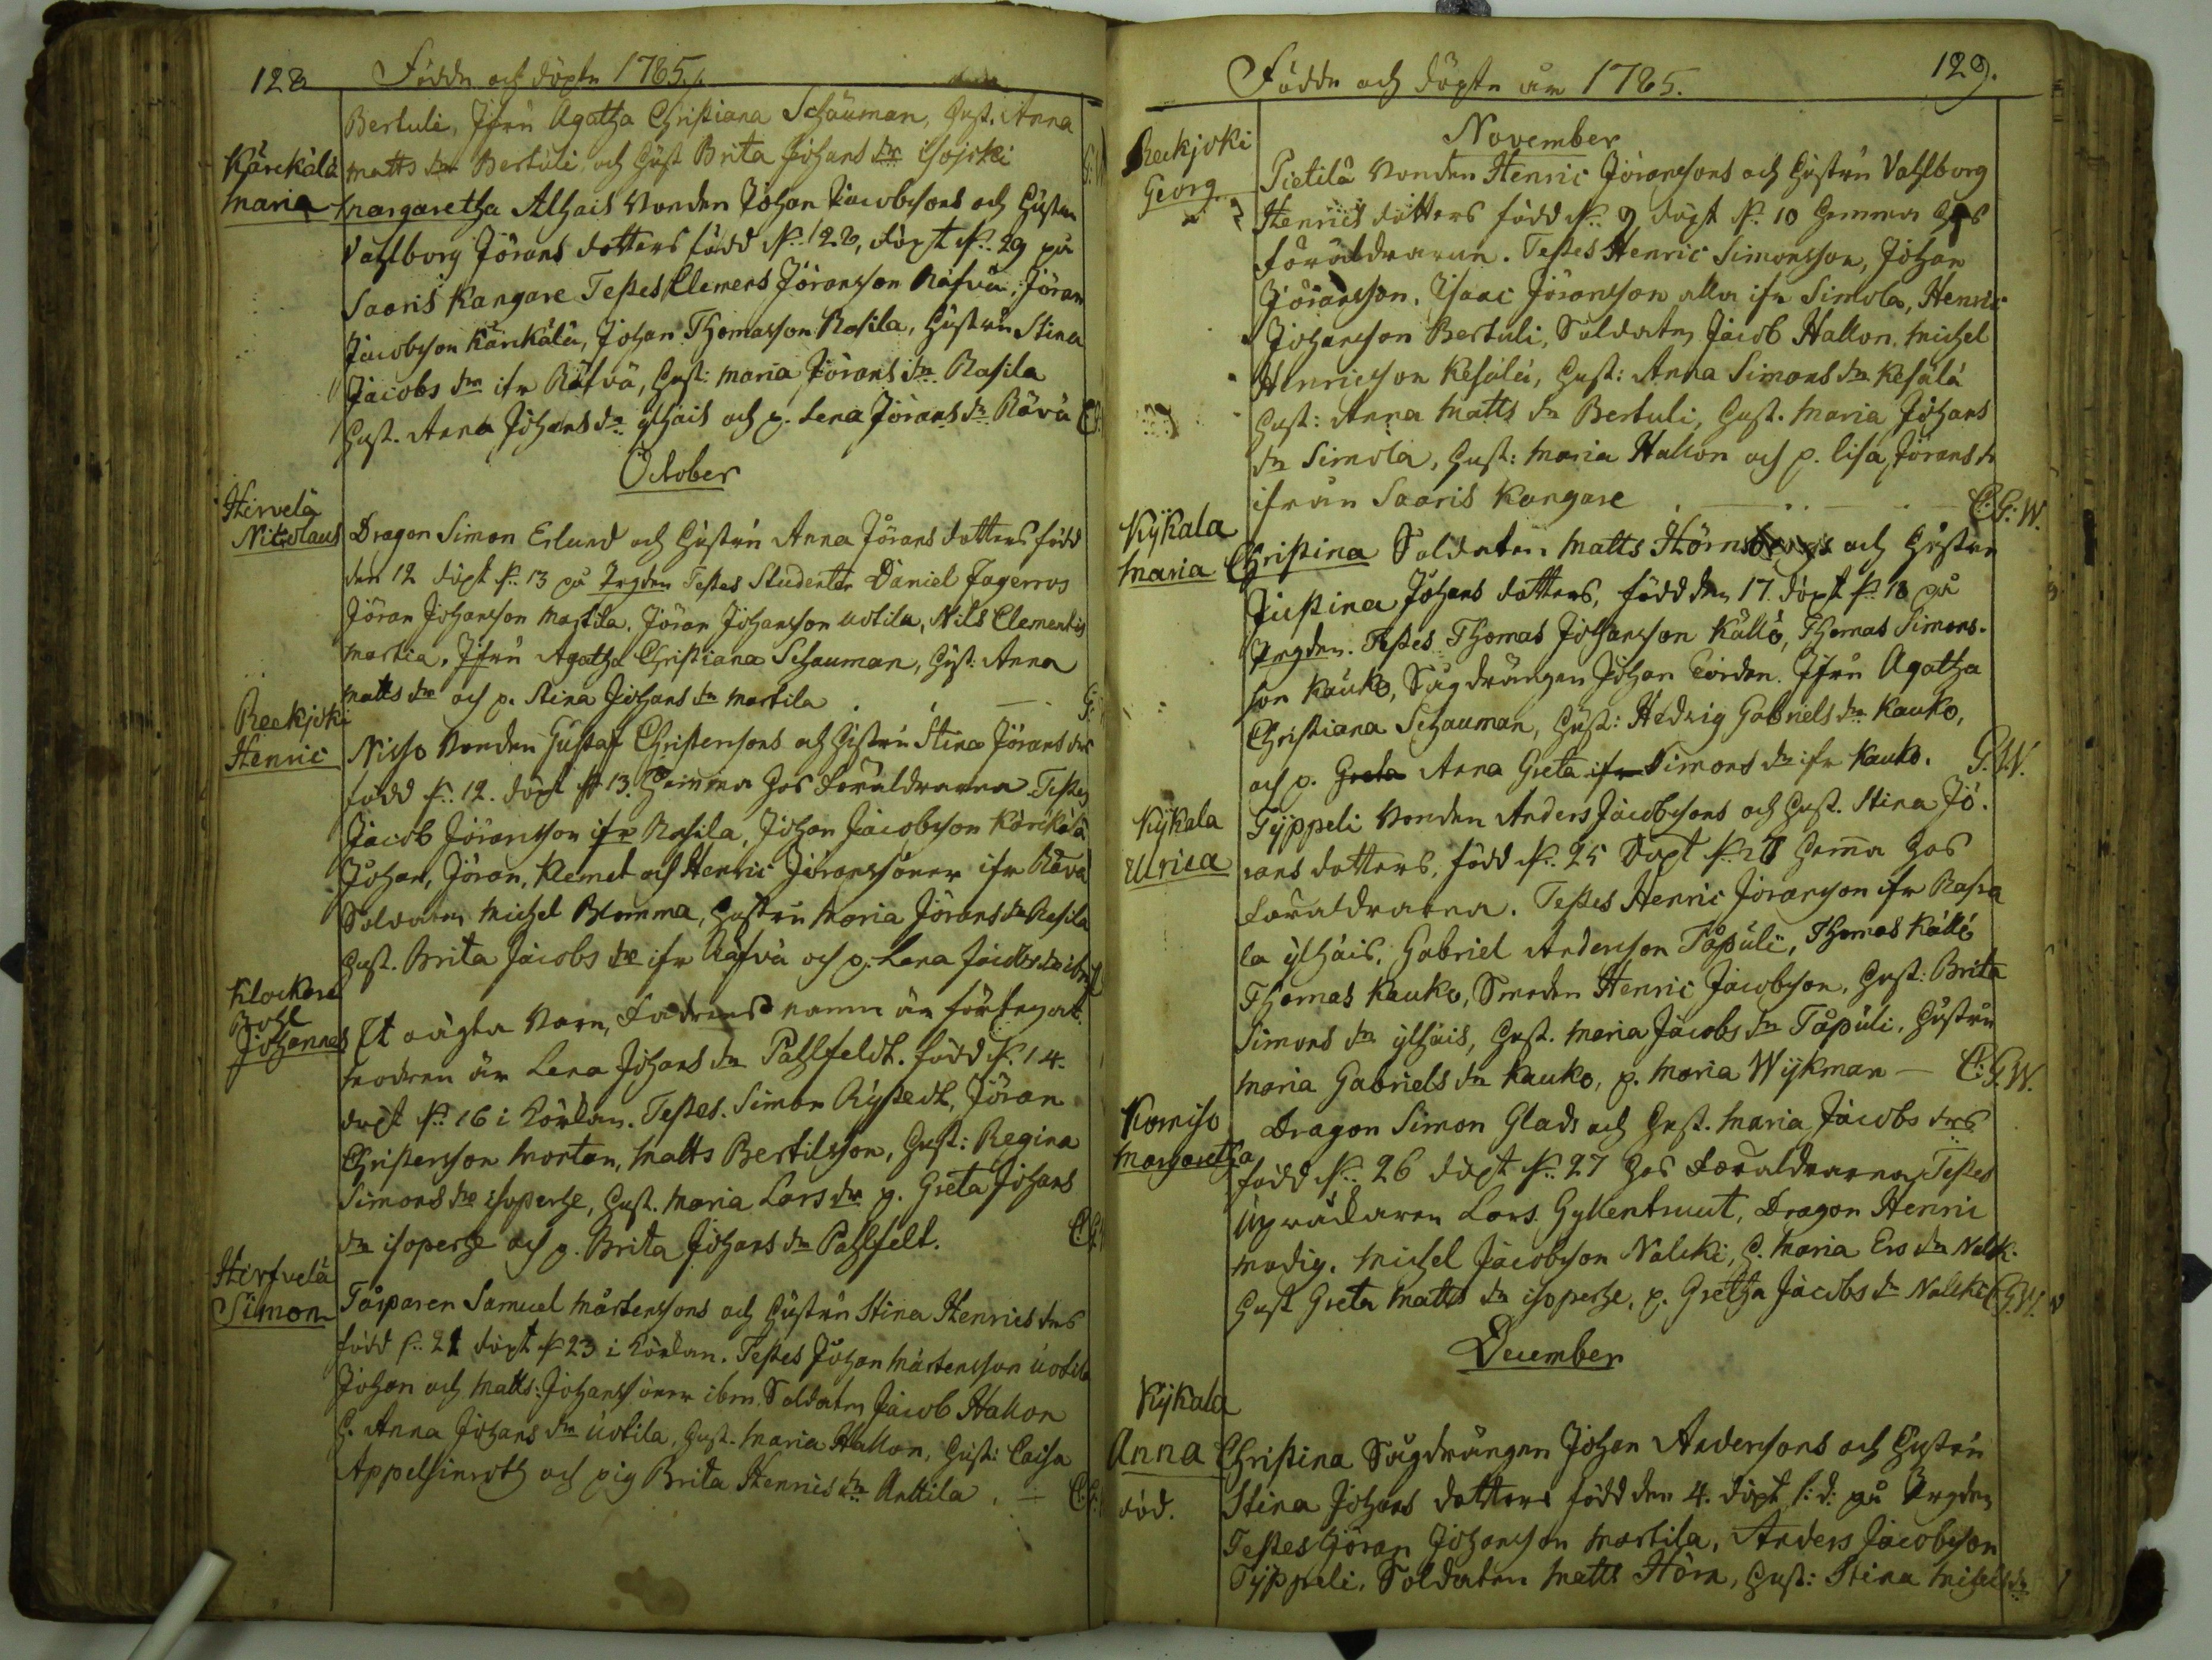 128 Födde och döpte 1785.
Bertuli, Jfru Agatha Christiana Schauman, Hust. Anna
Matts dr Bertuli och Hust Brita Johans dr Isojoki
Kärckälä
Maria
Margaretha Alhais Bonden Johan Jacobssons och Hustrun
Vahlborg Jörans dotters född d. 28, döpt d. 29 på
Saaris Kangare Testes Clemens Jöransson Räfvä, Jöran
Jacobsson Kärckälä, Johan Thomasson Rasila, Hustrun Stina
Jacobs dr ifr Räfvä, Hust: Maria Jörans dr Rasila
Hust. Anna Johans dr ylhais och p. Lena Jörans dr Rävä
October
Hirvelä
Nicolaus
Dragon Simon Erlund och Hustrun Anna Jörans dotters född
den 12 döpt d. 13 på Prgden Testes Studenten Daniel Fagerroos
Jöran Johansson Martila. Jöran Johansson uotila, Nils Clementis
Martia. Jfru Agatha Christiana Schauman, Hust: Anna
Matts dr och p. Stina Johans dr Martila
Reckjoki
Henric
Nisso Bonden Gustaf Christerssons och Hustrun Stina Jörans drs
född d. 12. döpt d. 13. Hemma hos Föräldrarna Testes
Jacob Jöransson ifr Rasila, Johan Jacobsson Kärckälä
Johan, Jöran, Klemet och Henric Jöranssöner ifr Rävä
Soldaten Michel Blomma, Hustrun Maria Jörans dr Rasila
Hust. Brita Jacobs dr ifr Räfvä och p. Lena Jacobs dr ibm
Klockare
Bohl
Johannes
Et oägta Barn, Fadrens namn är förtegat.
Modren är Lena Johans dr Pahlfeldt. född d. 14.
döpt d. 16 i Körkan. Testes. Simon Rystedt, Jöran
Christersson Mortan, Matts Bertilsson, Hust: Regina
Simons dr isoperhe, Hust. Maria Lars dr p. Greta Johans
dr isoperhe och p. Brita Johans dr Pahlfelt.
Hirfvelä
Simon
Tårparen Samuel Mårtenssons och Hustrun Stina Henrics drs
född d. 21 döpt d 23 i Körkan. Testes Johan Mårtensson uotila
Johan och Matts: Johanssöner ibm. Soldaten Jacob Hallon
H. Anna Johans dr uotila, Hust. Maria Hallon, Hust: Caisa
Appelsinroth och pig Brita Henrics dr Anttila.
Födde och döpte år 1785. 129.
November
Reckjoki
Georg
Pietilä Bonden Henric Jöranssons och Hustrun Vahlborg
Henrics dotters född d. 9 döpt d. 10 Hemma hos
Föräldrarne. Testes Henric Simonsson, Johan
Jöransson. Isaac Jöransson alla ifr Simola, Henric
Johansson Bertuli, Soldaten Jacob Hallon. Michel
Henricsson Kesälä, Hust: Anna Simons dr Kesälä
Hust: Anna Matts dr Bertuli, Hust. Maria Johans
dr Simola, Hust: Maria Hallon och p. Lisa Jörans dr
ifrån Saaris Kangare C.G.W.
Kÿkala
Maria
Christina Soldaten Matts Hörns och Hustrun
Justina Johans dotters, född den 17. döpt d. 18 på
Prgden. Testes Thomas Johansson Källö, Thomas Simons-
son Kauko, Sågdrängen Johan Torden. Jfru Agatha
Christiana Schauman, Hust: Hedvig Gabriels dr Kauko,
och p. Greta Anna Greta ifr Simons dr ifr Kauko. G.W.
Kÿkala
Ulrica
Tÿppeli Bonden Anders Jacobssons och Hust. Stina Jö-
rans dotters, född d. 25 Döpt d. 27 Hemma hos
Föräldrarna. Testes Henric Jöransson ifr Rasi
la ylhäis, Gabriel Andersson Tåpuli, Thomas Källö
Thomas Kauko, Smeden Henric Jacobsson, Hust: Brita
Simons dr ylhäis, Hust. Maria Jacobs dr Tåpuli, Hustrun
Maria Gabriels dr Kauko, p. Maria Wÿkman C.G.W.
Komiso
Margaretha
Dragon Simon Glads och Hust. Maria Jacobs drs
född d. 26 döpt d. 27 hos Föräldrarna, Testes
Uprådaren Lars Gyllentruut, Dragon Henric
Modig. Michel Jacobsson Nalcki, H. Maria Ers dr Nalck.
Hust Greta Matts dr isoperhe, p. Gretha Jacobs dr Nalcki C.G.W.
December
Kÿkala
Anna
död.
Christina Sågdrängen Johan Anderssons och Hustrun
Stina Johans dotters född den 4. döpt s: d: på Prgden
Testes Jöran Johansson Martila, Anders Jacobsson
Tÿppeli, Soldaten Matts Hörn, Hust: Stina Michels dr